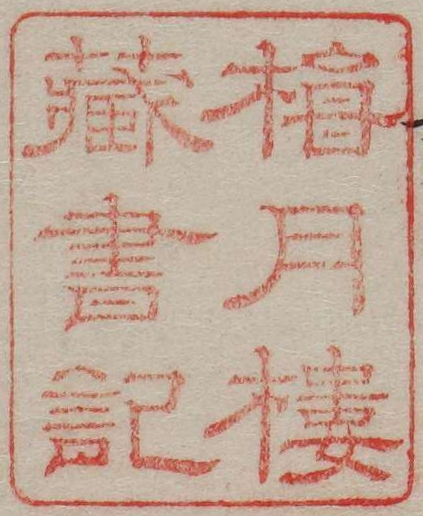 月樓
藏書記